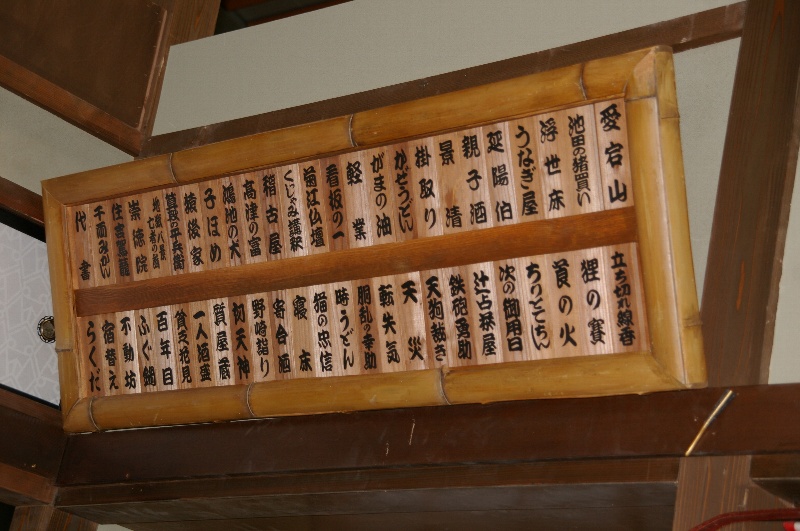 愛宕山
池田の猪買い
浮世床
うなぎ屋
延陽伯
親子酒
景清
掛取り
かぜうどん
がまの油
軽業
看板の一
菊江仏壇
くしゃみ講釈
稽古屋
高津の富
鴻池の犬
子ほめ
猿後家
算段の平兵衛
地獄八景
亡者の戯
住吉駕籠
崇徳院
千両みかん
代書
立ち切れ線香
狸の賽
首の火
ちりとてちん
次の御用日
辻占茶屋
鉄砲勇助
天狗裁き
天災
転失気
胴乱の幸助
時うどん
猫の忠信
寝床
寄合酒
野崎詣り
初天神
質屋蔵
一人酒盛
貧乏花見
百年目
ふぐ鍋
不動坊
宿替え
らくだ